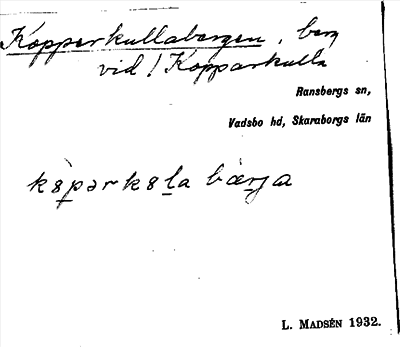 Kopparkullabergen, berg
vid / Kopparkulla
Ransbergs sn,
Vadsbo hd, Skaraborgs län
L. MADSÉN 1932.